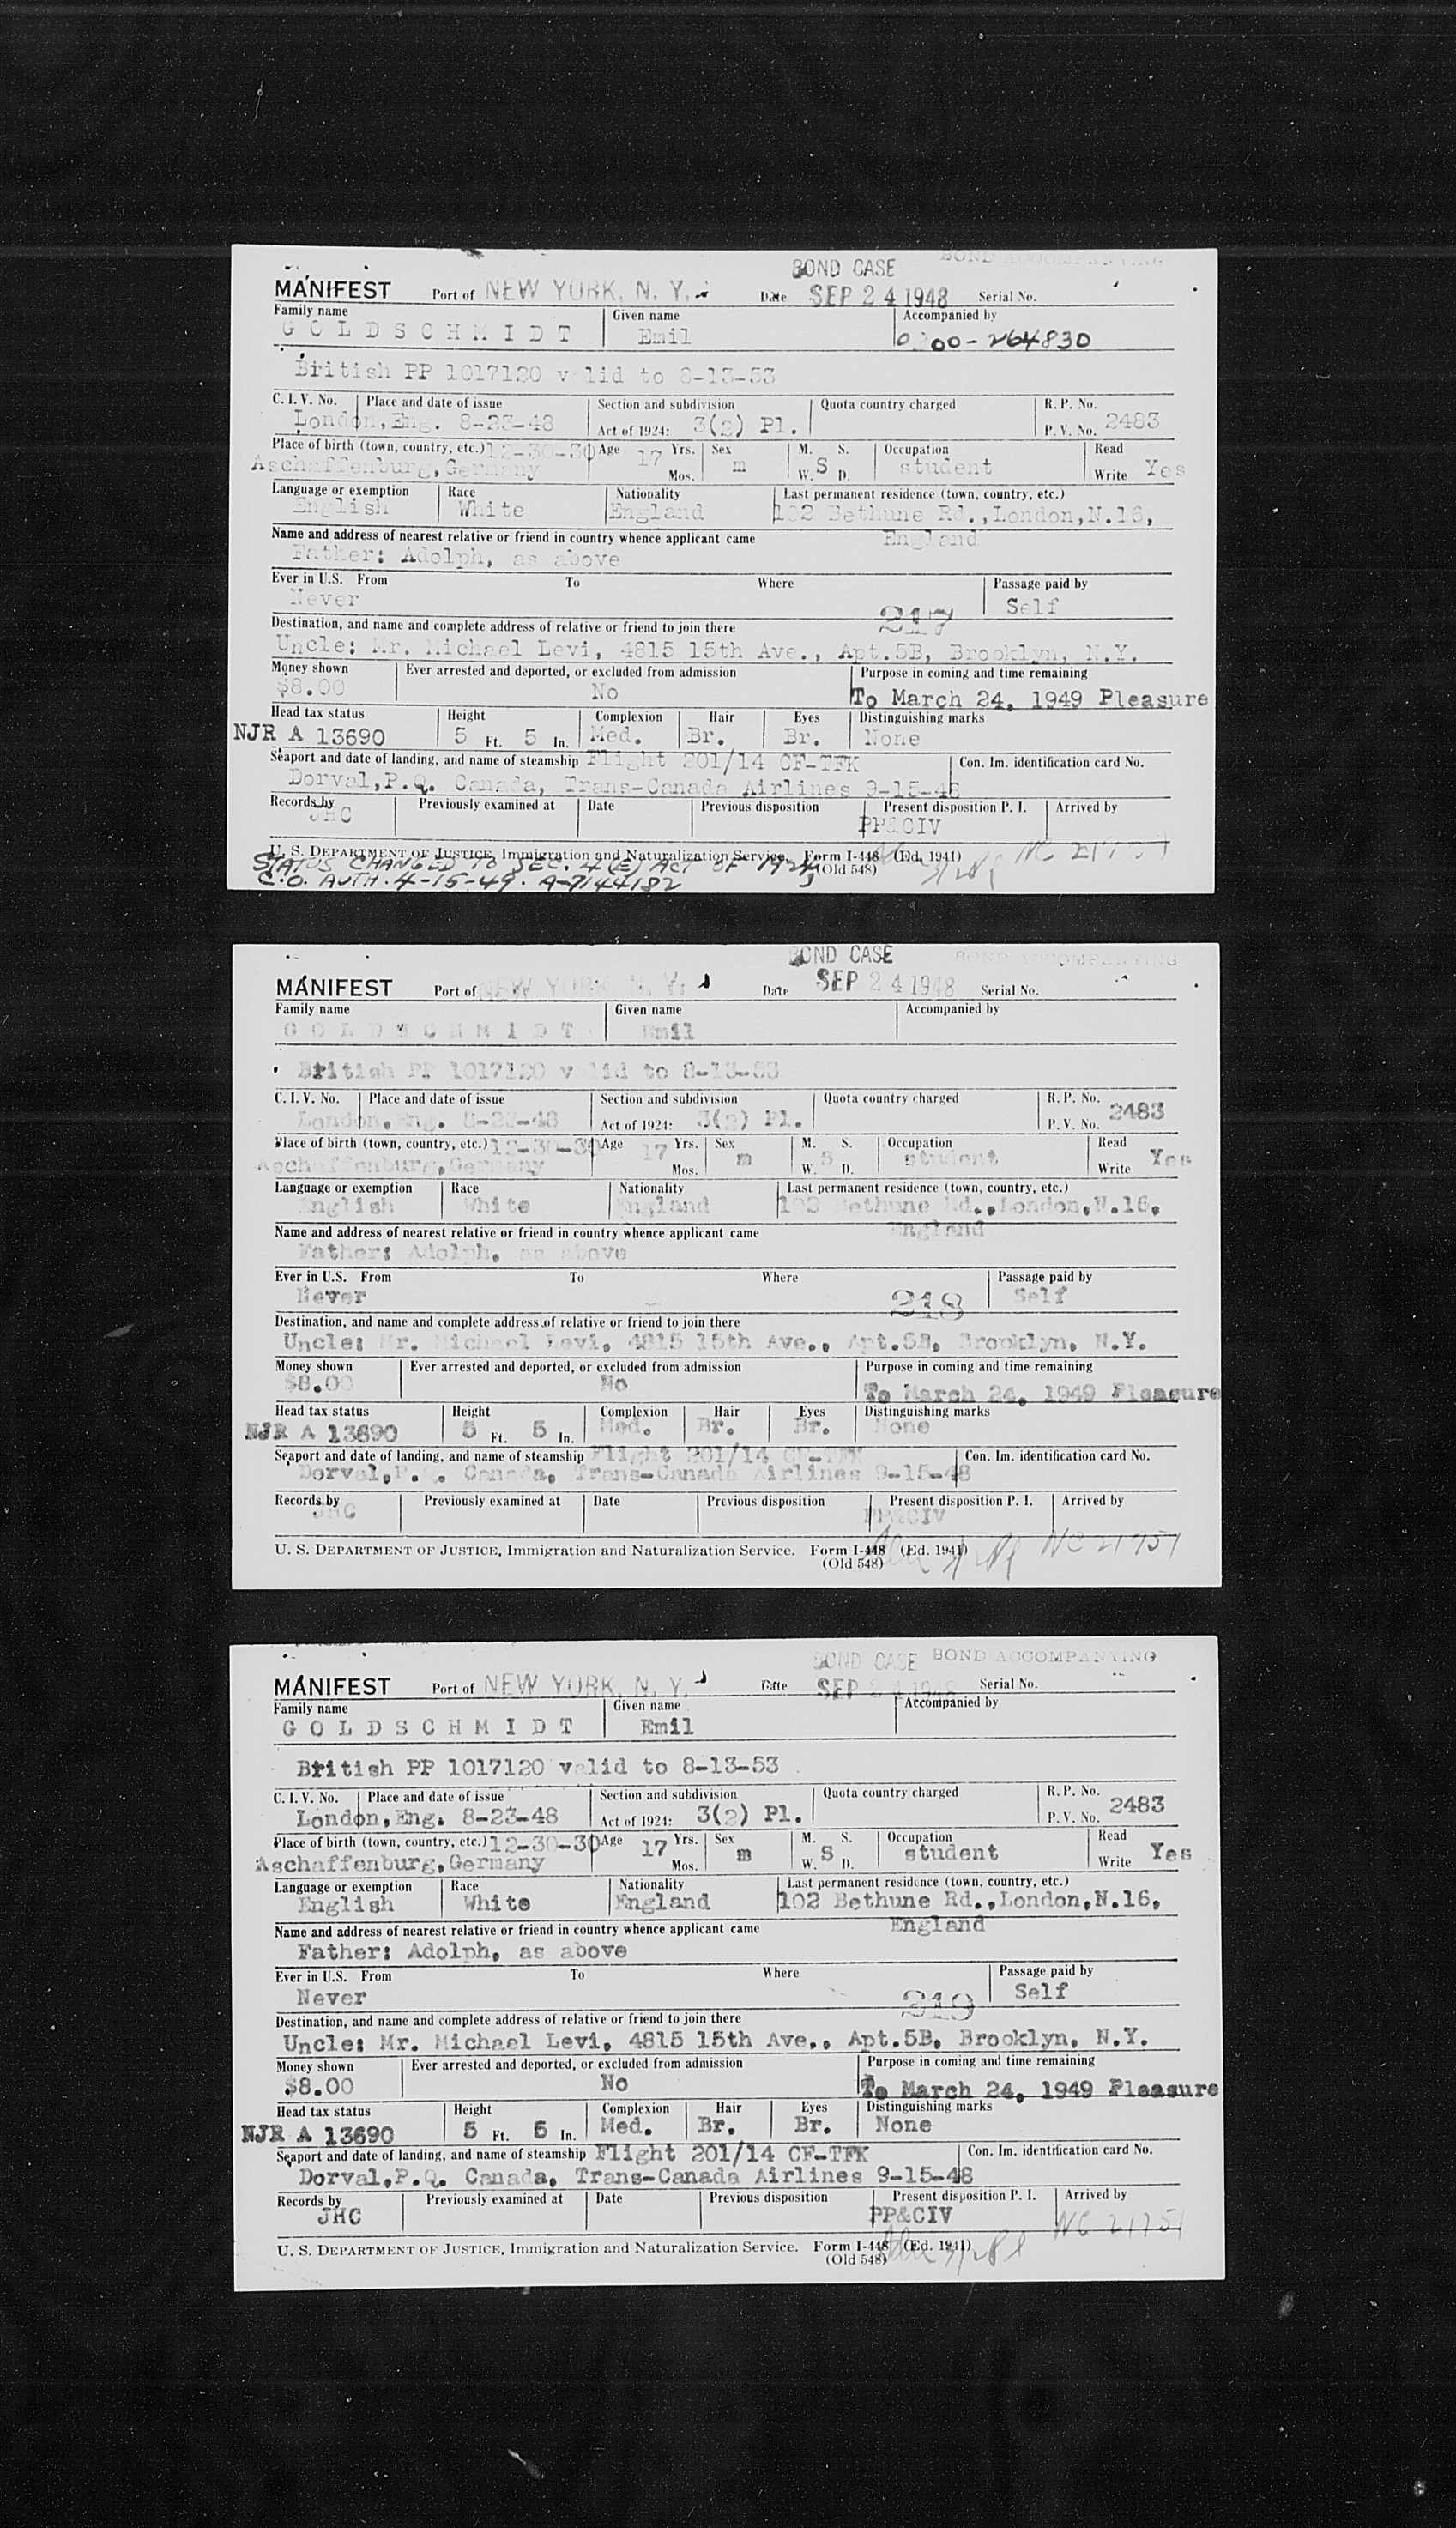 BOND CASE BOND ACCOMPANYING
MANIFEST Port of NEW YORK, N. Y. Date SEP 24 1948 Serial No.
Family name Given name Accompanied by
G O L D S C H M I D T Emil 00-264830
British PP 1017120 v lid to 8-13-53
C. I. V. No. Place and date of issue Section and subdivision Quota country charged R. P. No.
London, Eng. 8-23-48 Act of 1924: 3(2) Pl. P. V. No. 2483
Place of birth (town, country, etc.) 12-30-30 Age 17 Yrs. Sex M. S. Occupation Read
Aschaffenburg, Germany Mos. m W. S D. student Write Yes
Language or exemption Race Nationality Last permanent residence (town, country, etc.)
English White England 102 Bethune Rd., London, N.16,
Name and address of nearest relative or friend in country whence applicant came England
Father: Adolph, as above
Ever in U.S. From To Where Passage paid by
Never 217 Self
Destination, and name and complete address of relative or friend to join there
Uncle: Mr. Michael Levi, 4815 15th Ave., Apt.5B, Brooklyn, N.Y.
Money shown Ever arrested and deported, or excluded from admission Purpose in coming and time remaining
$8.00 No To March 24, 1949 Pleasure
Head tax status Height Complexion Hair Eyes Distinguishing marks
NJR A 13690 5 Ft. 5 In. Med. Br. Br. None
Seaport and date of landing, and name of steamship Flight 201/14 CF-TFK Con. Im. identification card No.
Dorval, P.Q. Canada, Trans-Canada Airlines 9-15-48
Records by Previously examined at Date Previous disposition Present disposition P. I. Arrived by
JHC PP&CIV
U. S. DEPARTMENT OF JUSTICE, Immigration and Naturalization Service. Form I-448 (Ed. 1941) NC 21751
(Old 548)
STATUS CHANGED TO SEC. 4 (E) ACT OF 1924,
C.O. AUTH. 4-15-49. A-7144182
BOND CASE BOND ACCOMPANYING
MANIFEST Port of NEW YORK, N. Y. Date SEP 24 1948 Serial No.
Family name Given name Accompanied by
G O L D S C H M I D T Emil
British PP 1017120 v lid to 8-13-53
C. I. V. No. Place and date of issue Section and subdivision Quota country charged R. P. No.
London, Eng. 8-23-48 Act of 1924: 3(2) Pl. P. V. No. 2483
Place of birth (town, country, etc.) 12-30-30 Age 17 Yrs. Sex M. S. Occupation Read
Aschaffenburg, Germany Mos. m W. S D. student Write Yes
Language or exemption Race Nationality Last permanent residence (town, country, etc.)
English White England 102 Bethune Rd., London, N.16,
Name and address of nearest relative or friend in country whence applicant came England
Father: Adolph, as above
Ever in U.S. From To Where Passage paid by
Never 218 Self
Destination, and name and complete address of relative or friend to join there
Uncle: Mr. Michael Levi, 4815 15th Ave., Apt.5B, Brooklyn, N.Y.
Money shown Ever arrested and deported, or excluded from admission Purpose in coming and time remaining
$8.00 No To March 24, 1949 Pleasure
Head tax status Height Complexion Hair Eyes Distinguishing marks
NJR A 13690 5 Ft. 5 In. Med. Br. Br. None
Seaport and date of landing, and name of steamship Flight 201/14 CF-TFK Con. Im. identification card No.
Dorval, P.Q. Canada, Trans-Canada Airlines 9-15-48
Records by Previously examined at Date Previous disposition Present disposition P. I. Arrived by
JHC PP&CIV
U. S. DEPARTMENT OF JUSTICE, Immigration and Naturalization Service. Form I-448 (Ed. 1941) NC 21751
(Old 548)
BOND CASE BOND ACCOMPANYING
MANIFEST Port of NEW YORK, N. Y. Date SEP 24 1948 Serial No.
Family name Given name Accompanied by
G O L D S C H M I D T Emil
British PP 1017120 valid to 8-13-53
C. I. V. No. Place and date of issue Section and subdivision Quota country charged R. P. No.
London, Eng. 8-23-48 Act of 1924: 3(2) Pl. P. V. No. 2483
Place of birth (town, country, etc.) 12-30-30 Age 17 Yrs. Sex M. S. Occupation Read
Aschaffenburg, Germany Mos. m W. S D. student Write Yes
Language or exemption Race Nationality Last permanent residence (town, country, etc.)
English White England 102 Bethune Rd., London, N.16,
Name and address of nearest relative or friend in country whence applicant came England
Father: Adolph, as above
Ever in U.S. From To Where Passage paid by
Never 219 Self
Destination, and name and complete address of relative or friend to join there
Uncle: Mr. Michael Levi, 4815 15th Ave., Apt.5B, Brooklyn, N.Y.
Money shown Ever arrested and deported, or excluded from admission Purpose in coming and time remaining
$8.00 No To March 24, 1949 Pleasure
Head tax status Height Complexion Hair Eyes Distinguishing marks
NJR A 13690 5 Ft. 5 In. Med. Br. Br. None
Seaport and date of landing, and name of steamship Flight 201/14 CF-TFK Con. Im. identification card No.
Dorval, P.Q. Canada, Trans-Canada Airlines 9-15-48
Records by Previously examined at Date Previous disposition Present disposition P. I. Arrived by
JHC PP&CIV NC 21751
U. S. DEPARTMENT OF JUSTICE, Immigration and Naturalization Service. Form I-448 (Ed. 1941)
(Old 548)